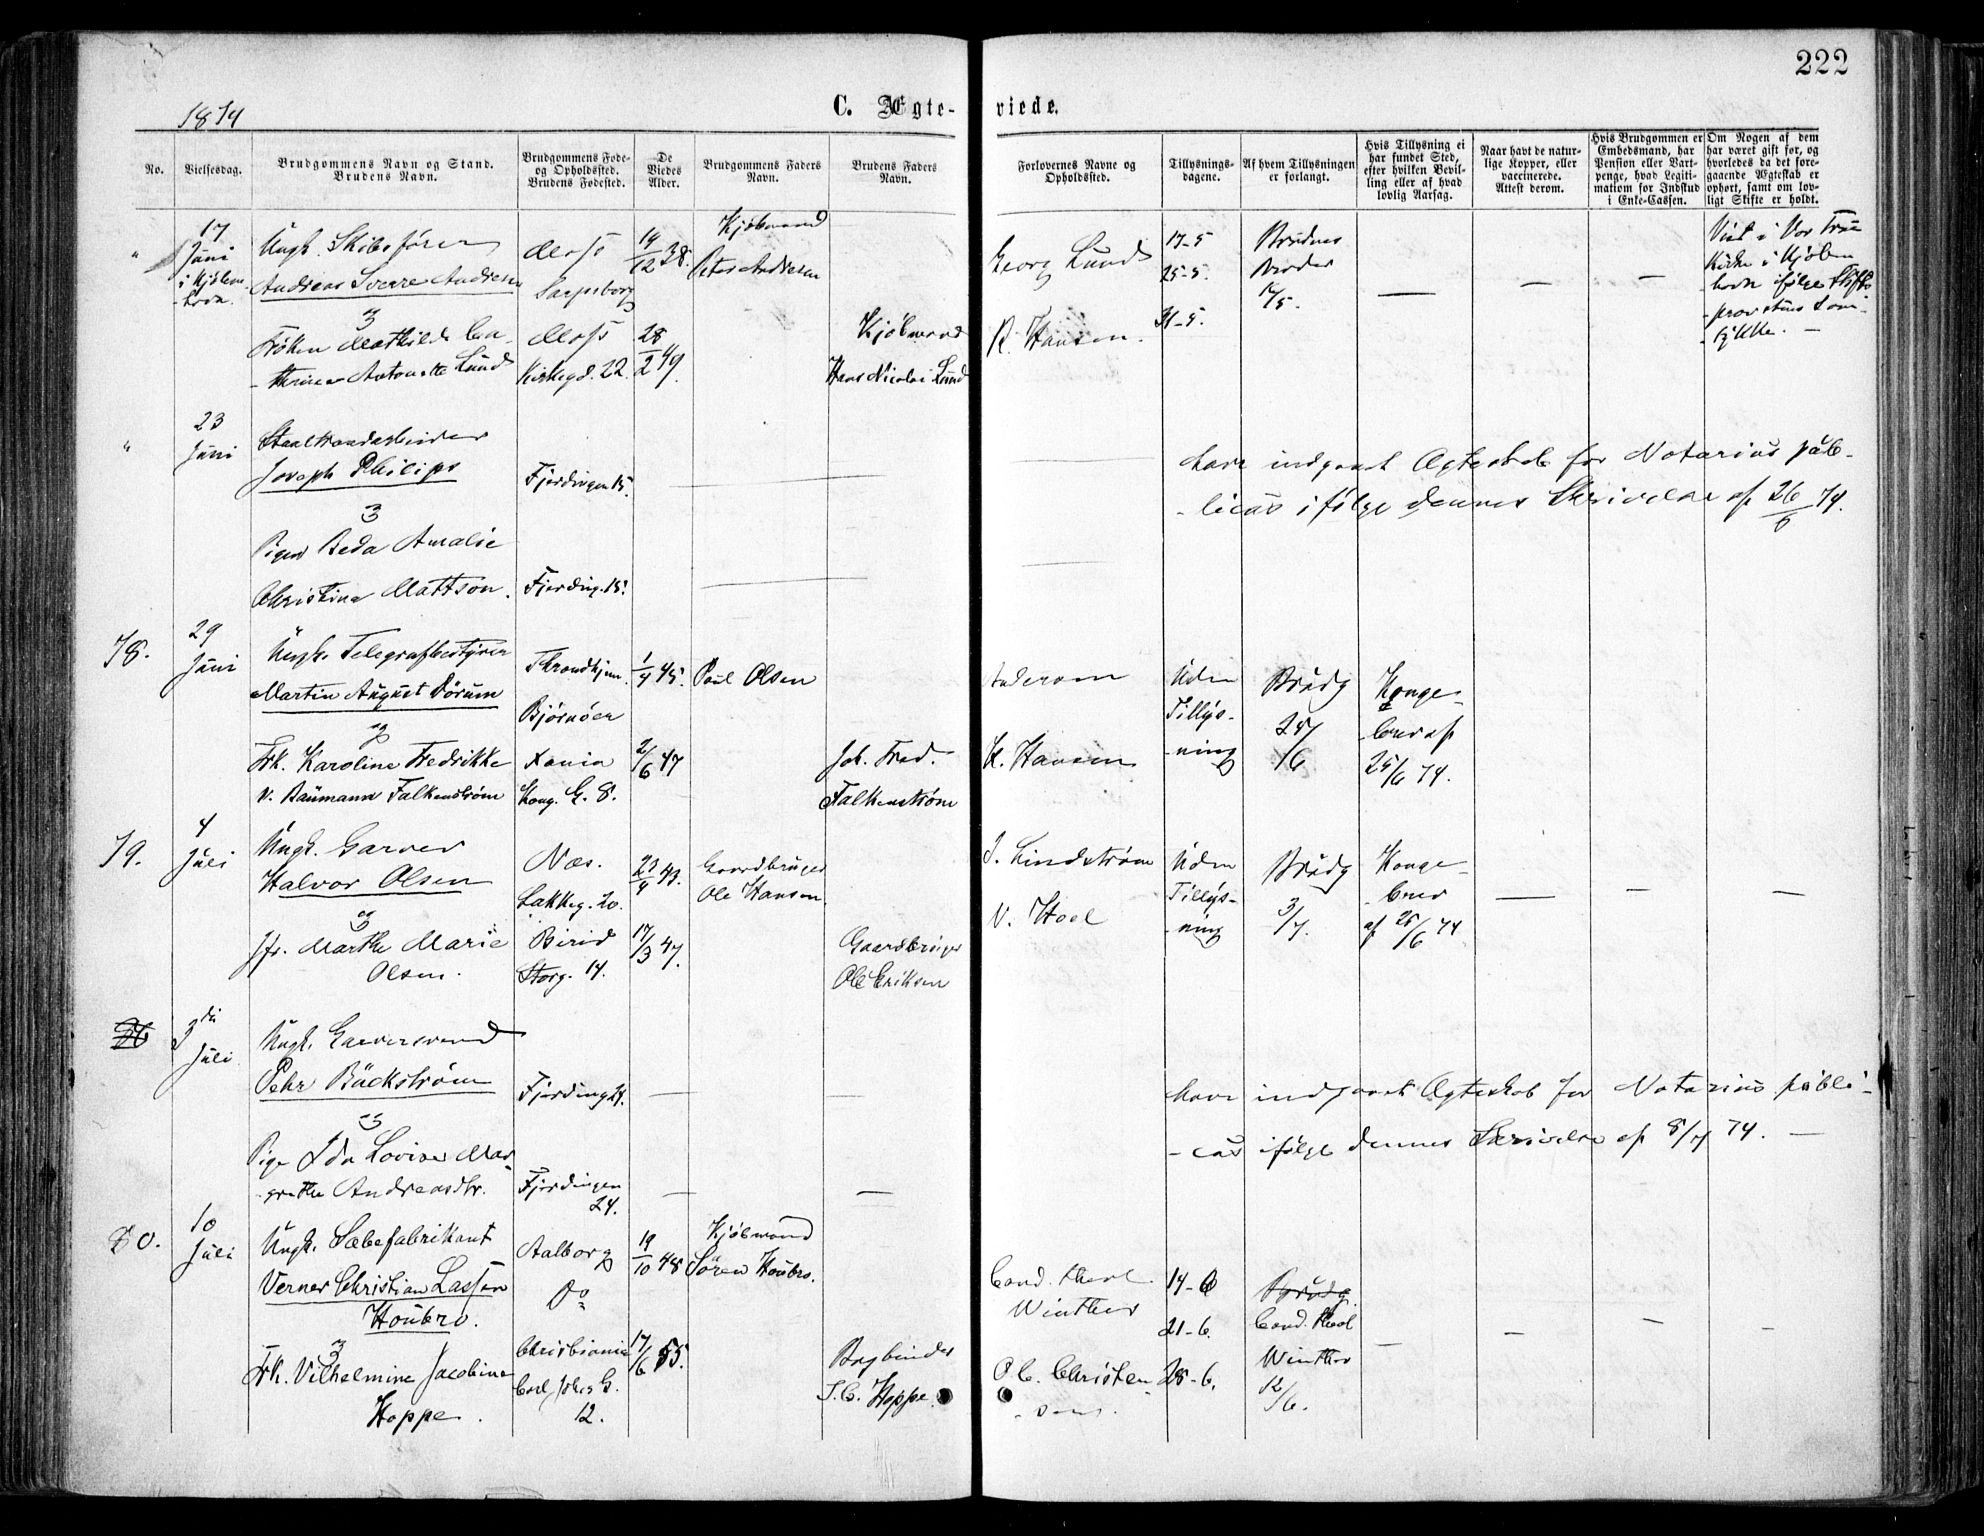 222
1874
C. Ægte-
viede.
No.
Vielsesdag.
Brudgommens Navn og Stand.
Brudens Navn.
Brudgommens Føde-
og Opholdssted.
Brudens Fødested.
De
Viedes
Alder.
Brudgommens Faders
Navn.
Brudens Faders
Navn.
Forlovernes Navne og
Opholdssted.
Tillysnings-
dagene.
Af hvem Tillysningen
er forlangt.
Hvis Tillysning ei
har fundet Sted,
efter hvilken Bevil-
ling eller af hvad
lovlig Aarsag.
Naar havt de natur-
lige Kopper, eller
vaccinerede.
Attest derom.
Hvis Brudgommen er
Embedsmand, har
Pension eller Vart-
penge, hvad Legiti-
mation for Indskud
i Enke-Cassen.
Om Nogen af dem
har været gift før, og
hvorledes da det fore-
gaaende Ægteskab er
ophørt, samt om lov-
ligt Skifte er holdt.
"
17
Juni
i Kjøben-
-havn.
Ungk. Skibsfører
Andreas Sverre Andresen
Moss
Sarpsborg
19/12 38.
Kjøbmand
Peter Andresen
Georg Lund
17-5
25-5.
31-5.
Brudens
Broder
Viet i Vor Frue
Kirke i Kjøben
havn ifølge Stifts
-provstens
og
Frøken Mathilde Ca-
-thrine Antonette Lund
Moss
Kirkegd. 22.
28/2 49.
Kjøbmand
Hans Nicolai Lund
R. Hansen.
"
23
Juni
Joseph Philips
Fjerdingen 15.
have indgaaet Ægteskab for Notarius pub-
-licus ifølge dennes Skrivelse af 26/6 74.
og
Pigen Beda Amalie
Christine Mattson.
Fjerding. 15.
78.
29
Juni
Ungk. Telegrafbestyrer
Martin August Dørum
Throndhjem.
Bjørnøer
1/4 45.
Paul Olsen
Anderson
Uden
Tillys-
-ning
Brudg
Konge-
-brev af
25/6 74.
og
Frk. Karoline Fredrikke
v. Baumann Falkenstrøm
Xania
Kong. G. 8.
2/6 47
Joh. Fred.
Falkenstrøm
H. Hansen
79.
4
Juli
Ungk. Garver
Halvor Olsen
Næs.
Lakkeg. 20.
23/4 43.
Gaardbruger
Ole Hansen.
J. Lindstrøm
Uden
Tillys-
-ning
Brudg
3/7.
Konge-
-brev
af 25/6 74
og
Jfr. Marthe Marie
Olsen.
Birid
Storg. 14.
17/3 47.
Gaardbruger
Ole Eriksen
N. Hoel
3die
Juli
Ungk. Garversvend
Pehr Bäckstrøm
Fjerding 24.
have indgaaet Ægteskab for Notarius publi-
-cus ifølge dennes Skrivelse af 8/7 74.
og
Pige Ida Lovise Mar-
-grethe Andreasdtr.
Fjerdingen
24.
80.
10
Juli
Ungk. Sæbefabrikant
Verner Christian Lassen
Houbro.
Aalborg
Do
19/10 48
Kjøbmand
Søren Houbro.
Cand. theol
Winther
14-6
21-6.
28-6.
Brudg.
Cand. theol
Winther
12/6.
og
Frk. Vilhelmine Jacobine
Hoppe.
Christiania
Carl Johns G.
12.
17/6 55.
Bogbinder
J. C. Hoppe.
P. C. Christen
-sen.